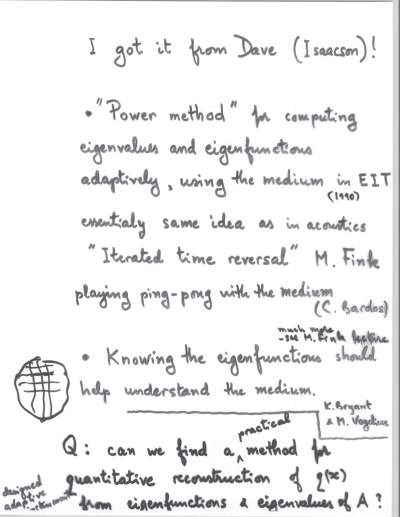 I got it from Dave (Isaacson)!
• "Power method" for computing
eigenvalues and eigenfunctions
adaptively, using the medium in EIT
(1990)
essentialy same idea as in acoustics
"Iterated time reversal" M. Fink
playing ping-pong with the medium
(C. Bardos)
much more
- see M. Fink lecture
• Knowing the eigenfunctions should
help understand the medium.
K. Bryant
& M. Vogelius
practical
Q: can we find a method for
quantitative reconstruction of q(x)
from eigenfunctions & eigenvalues of A?
designed
adaptive